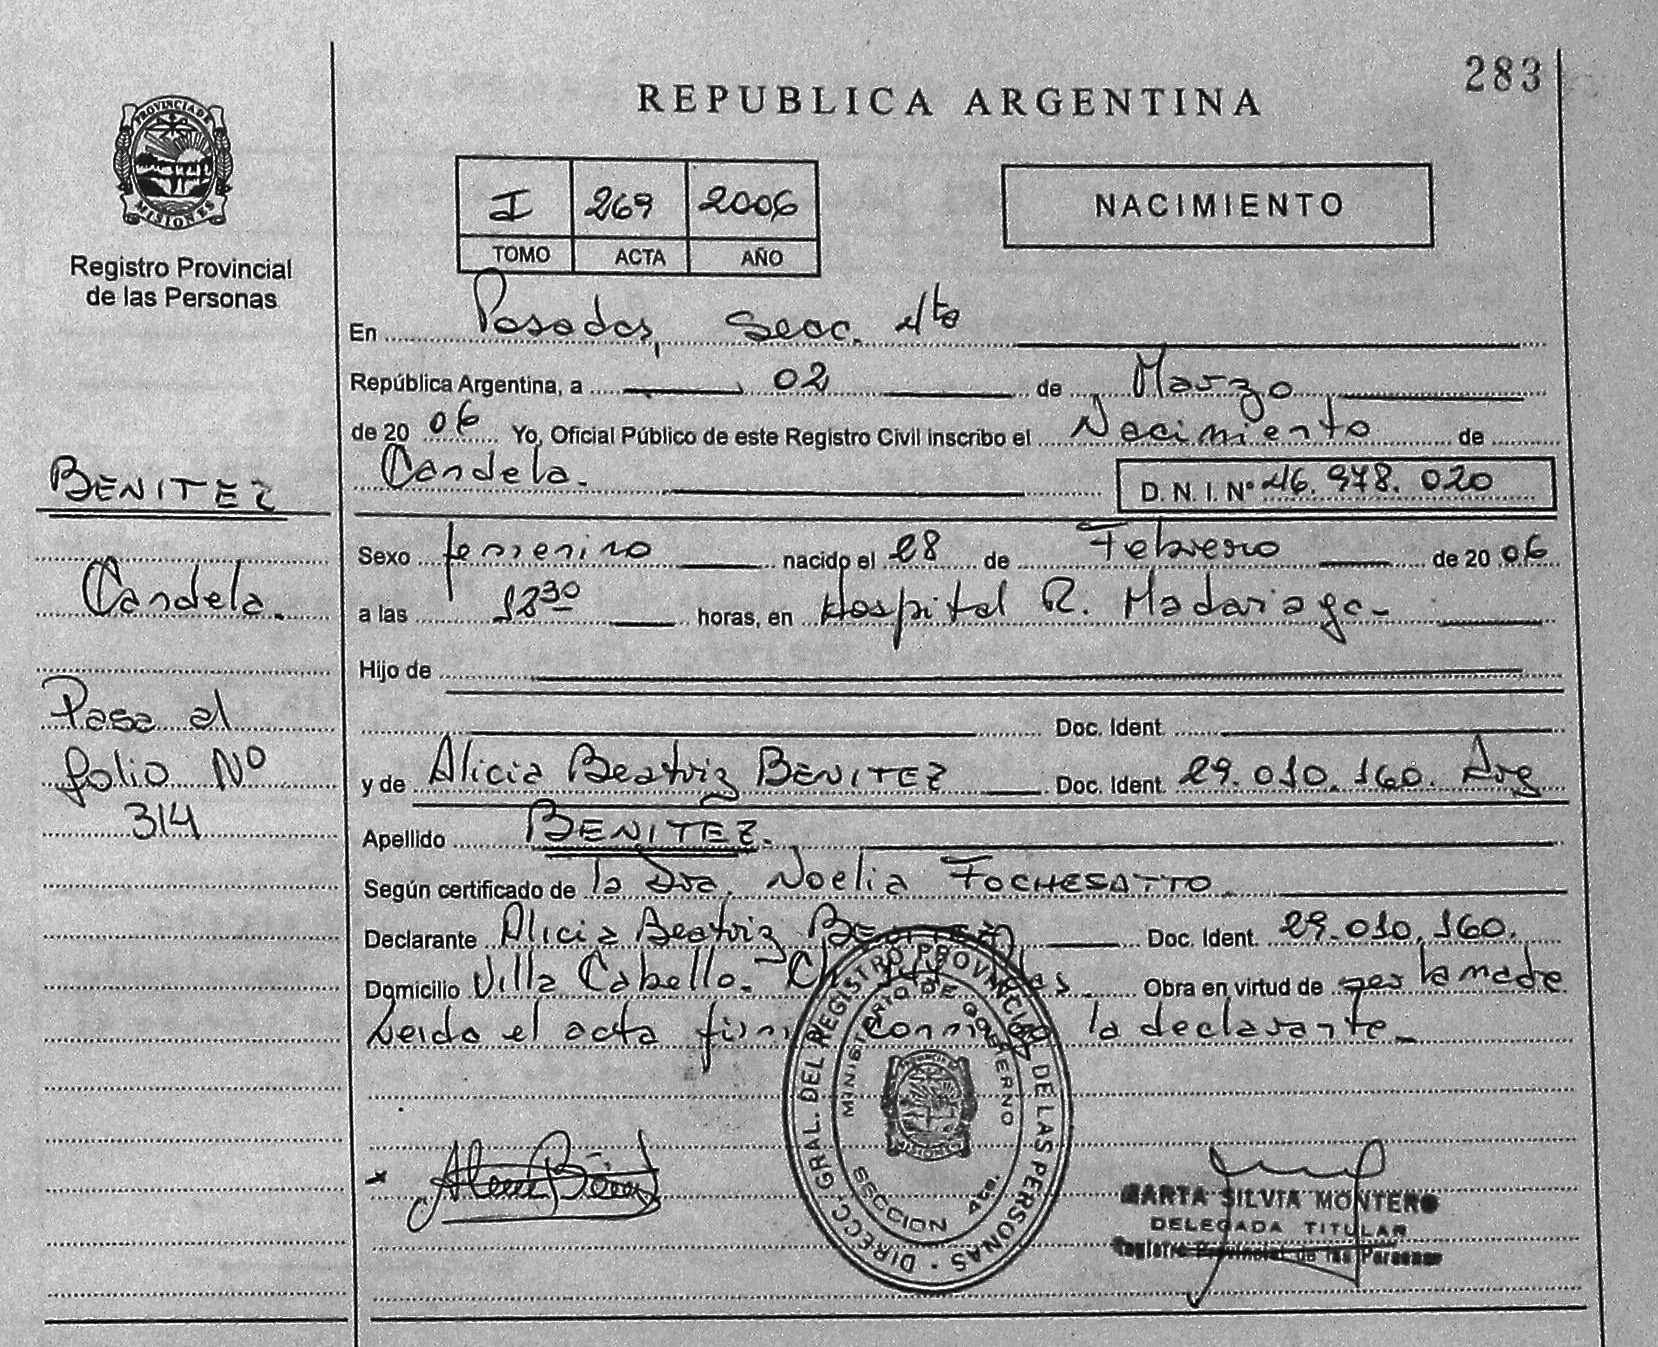 283
REPUBLICA ARGENTINA
PROVINCIA DE
MISIONES
Registro Provincial
de las Personas
I 269 2006
TOMO ACTA AÑO
NACIMIENTO
En Posadas, Secc. 4ta
República Argentina, a 02 de Marzo
de 2006 Yo, Oficial Público de este Registro Civil inscribo el Nacimiento de
Candela. D. N. I. Nº 46.978.020
BENITEZ
Candela.
Pasa al
folio Nº
314
Sexo femenino nacido el 28 de Febrero de 2006
a las 18 30 horas, en Hospital R. Madariaga-
Hijo de
Doc. Ident.
y de Alicia Beatriz BENITEZ Doc. Ident. 29.010.160. Arg
Apellido BENITEZ.
Según certificado de la Dra. Noelia FOCHESATTO
Declarante Alicia Beatriz BENITEZ Doc. Ident. 29.010.160.
Domicilio Villa Cabello. Obra en virtud de ser la madre
Leida el acta firma conmigo la declarante.-
DIRECC. GRAL. DEL REGISTRO PROVINCIAL DE LAS PERSONAS
MINISTERIO DE GOBIERNO
SECCION 4ta.
MISIONES
MARTA SILVIA MONTERO
DELEGADA TITULAR
Registro Provincial de las Personas